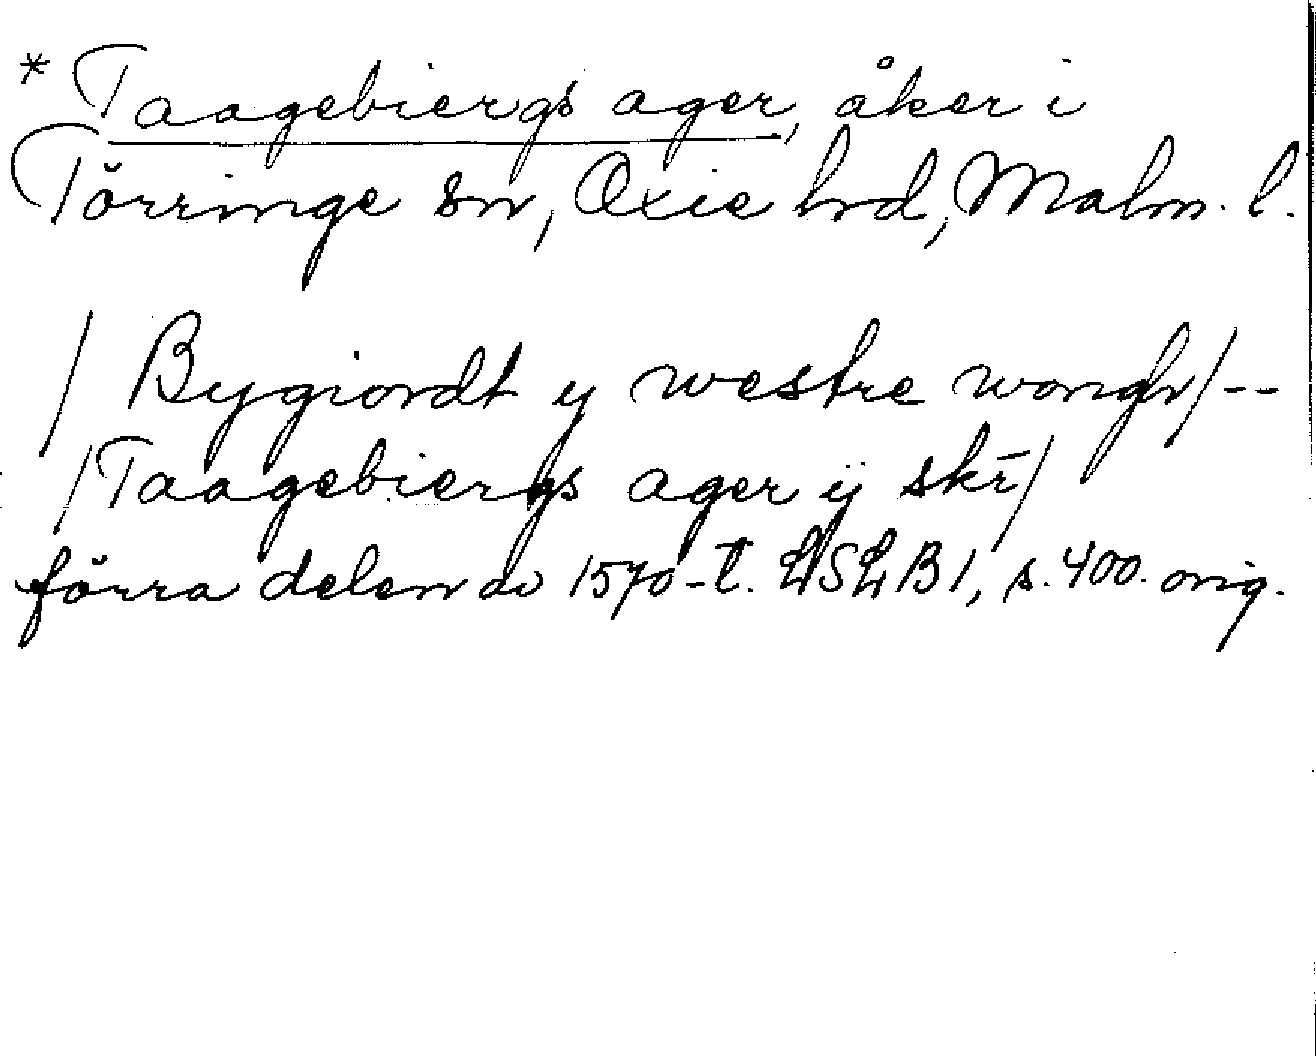 * Taagebiergs ager, åker i
Törringe sn, Oxie hrd, Malm. l.
/ Bygiordt y westre wongh / --
/ Taagebiergs ager ij skr̄ /
förra delen av 1570-t. LSLB1, s. 400. orig.